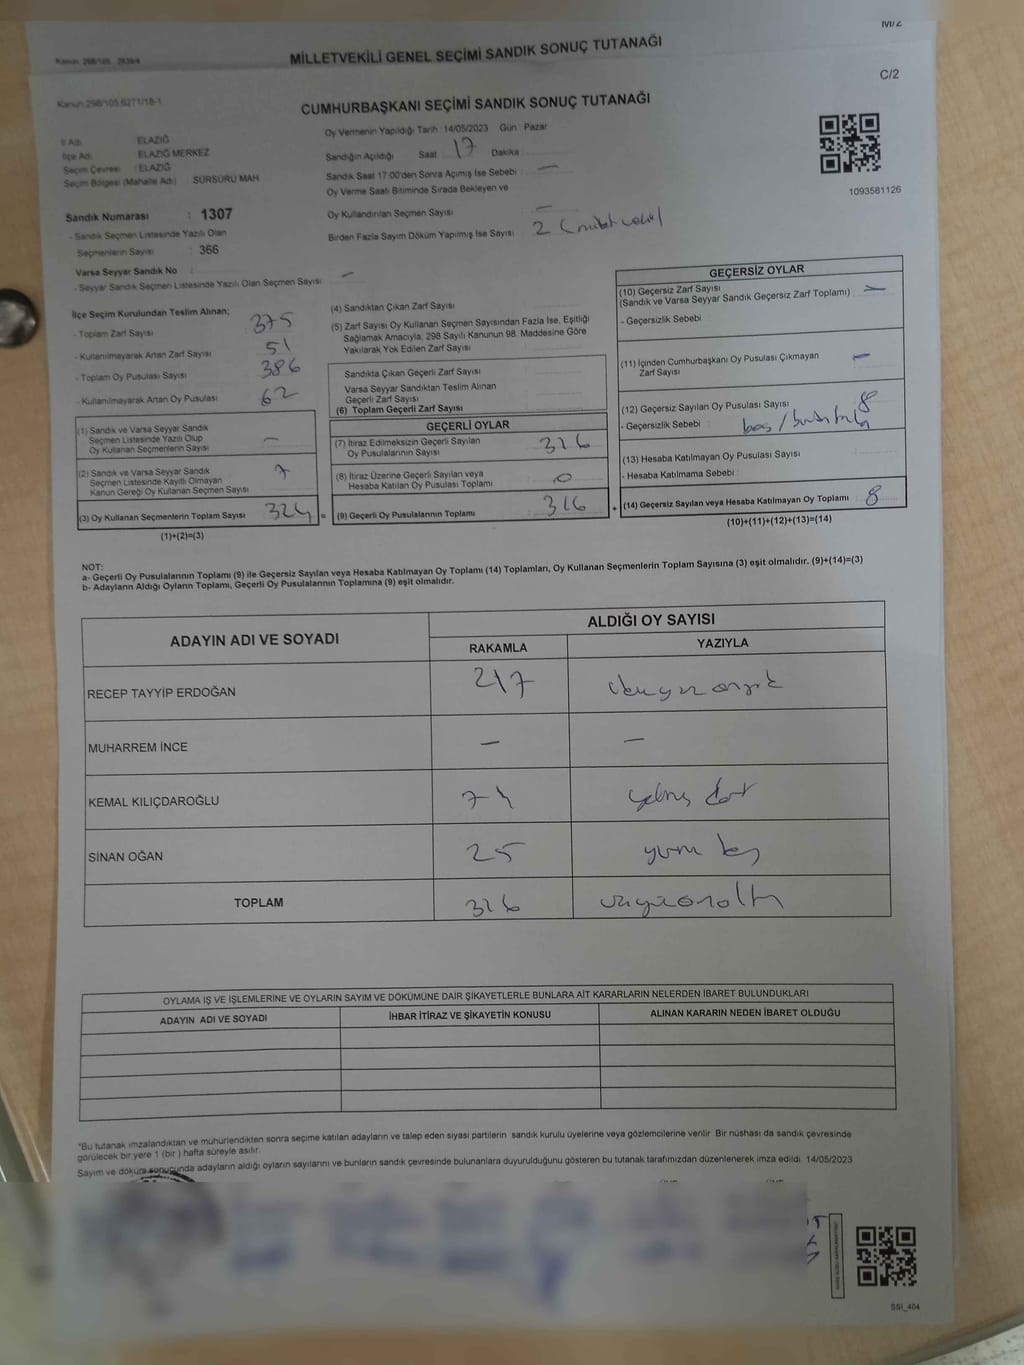 C/2
Kanun 298/105, 2839/4
MİLLETVEKİLİ GENEL SEÇİMİ SANDIK SONUÇ TUTANAĞI
Kanun 298/105,6271/18-1
CUMHURBAŞKANI SEÇİMİ SANDIK SONUÇ TUTANAĞI
1093581126
İl Adı : ELAZIĞ
İlçe Adı : ELAZIĞ MERKEZ
Seçim Çevresi : ELAZIĞ
Seçim Bölgesi (Mahalle Adı) : SÜRSÜRÜ MAH
Sandık Numarası : 1307
- Sandık Seçmen Listesinde Yazılı Olan
Seçmenlerin Sayısı : 366
Varsa Seyyar Sandık No :
- Seyyar Sandık Seçmen Listesinde Yazılı Olan Seçmen Sayısı : —
Oy Vermenin Yapıldığı Tarih :14/05/2023 Gün : Pazar
Sandığın Açıldığı Saat 17 Dakika
Sandık Saat 17:00'den Sonra Açımış İse Sebebi : —
Oy Verme Saati Bitiminde Sırada Bekleyen ve
Oy Kullandırılan Seçmen Sayısı : —
Birden Fazla Sayım Döküm Yapılmış İse Sayısı : 2
İlçe Seçim Kurulundan Teslim Alınan;
- Toplam Zarf Sayısı 375
- Kullanılmayarak Artan Zarf Sayısı 51
- Toplam Oy Pusulası Sayısı 386
- Kullanılmayarak Artan Oy Pusulası 62
(1) Sandık ve Varsa Seyyar Sandık
Seçmen Listesinde Yazılı Olup
Oy Kullanan Seçmenlerin Sayısı : —
(2) Sandık ve Varsa Seyyar Sandık
Seçmen Listesinde Kayıtlı Olmayan
Kanun Gereği Oy Kullanan Seçmen Sayısı 7
(3) Oy Kullanan Seçmenlerin Toplam Sayısı 324 =
(1)+(2)=(3)
(4) Sandıktan Çıkan Zarf Sayısı
(5) Zarf Sayısı Oy Kullanan Seçmen Sayısından Fazla İse, Eşitliği
Sağlamak Amacıyla, 298 Sayılı Kanunun 98. Maddesine Göre
Yakılarak Yok Edilen Zarf Sayısı
Sandıkta Çıkan Geçerli Zarf Sayısı
Varsa Seyyar Sandıktan Teslim Alınan
Geçerli Zarf Sayısı
(6) Toplam Geçerli Zarf Sayısı
GEÇERLİ OYLAR
(7) İtiraz Edilmeksizin Geçerli Sayılan
Oy Pusulalarının Sayısı 316
(8) İtiraz Üzerine Geçerli Sayılan veya
Hesaba Katılan Oy Pusulası Toplamı 0
(9) Geçerli Oy Pusulalarının Toplamı 316 +
GEÇERSİZ OYLAR
(10) Geçersiz Zarf Sayısı
(Sandık ve Varsa Seyyar Sandık Geçersiz Zarf Toplamı) : —
- Geçersizlik Sebebi :
(11) İçinden Cumhurbaşkanı Oy Pusulası Çıkmayan
Zarf Sayısı —
(12) Geçersiz Sayılan Oy Pusulası Sayısı 8
- Geçersizlik Sebebi : boş /
(13) Hesaba Katılmayan Oy Pusulası Sayısı
- Hesaba Katılmama Sebebi :
(14) Geçersiz Sayılan veya Hesaba Katılmayan Oy Toplamı 8
(10)+(11)+(12)+(13)=(14)
NOT:
a- Geçerli Oy Pusulalarının Toplamı (9) ile Geçersiz Sayılan veya Hesaba Katılmayan Oy Toplamı (14) Toplamları, Oy Kullanan Seçmenlerin Toplam Sayısına (3) eşit olmalıdır. (9)+(14)=(3)
b- Adayların Aldığı Oyların Toplamı, Geçerli Oy Pusulalarının Toplamına (9) eşit olmalıdır.
ADAYIN ADI VE SOYADI
ALDIĞI OY SAYISI
RAKAMLA YAZIYLA
RECEP TAYYİP ERDOĞAN 217
MUHARREM İNCE — —
KEMAL KILIÇDAROĞLU 74 yetmiş dört
SİNAN OĞAN 25 yirmi beş
TOPLAM 316 üçyüzonaltı
OYLAMA İŞ VE İŞLEMLERİNE VE OYLARIN SAYIM VE DÖKÜMÜNE DAİR ŞİKAYETLERLE BUNLARA AİT KARARLARIN NELERDEN İBARET BULUNDUKLARI
ADAYIN ADI VE SOYADI İHBAR İTİRAZ VE ŞİKAYETİN KONUSU ALINAN KARARIN NEDEN İBARET OLDUĞU
*Bu tutanak imzalandıktan ve mühürlendikten sonra seçime katılan adayların ve talep eden siyasi partilerin sandık kurulu üyelerine veya gözlemcilerine verilir. Bir nüshası da sandık çevresinde
görülecek bir yere 1 (bir ) hafta süreyle asılır.
Sayım ve döküm sonucunda adayların aldığı oyların sayılarını ve bunların sandık çevresinde bulunanlara duyurulduğunu gösteren bu tutanak tarafımızdan düzenlenerek imza edildi. 14/05/2023
SSİ_404